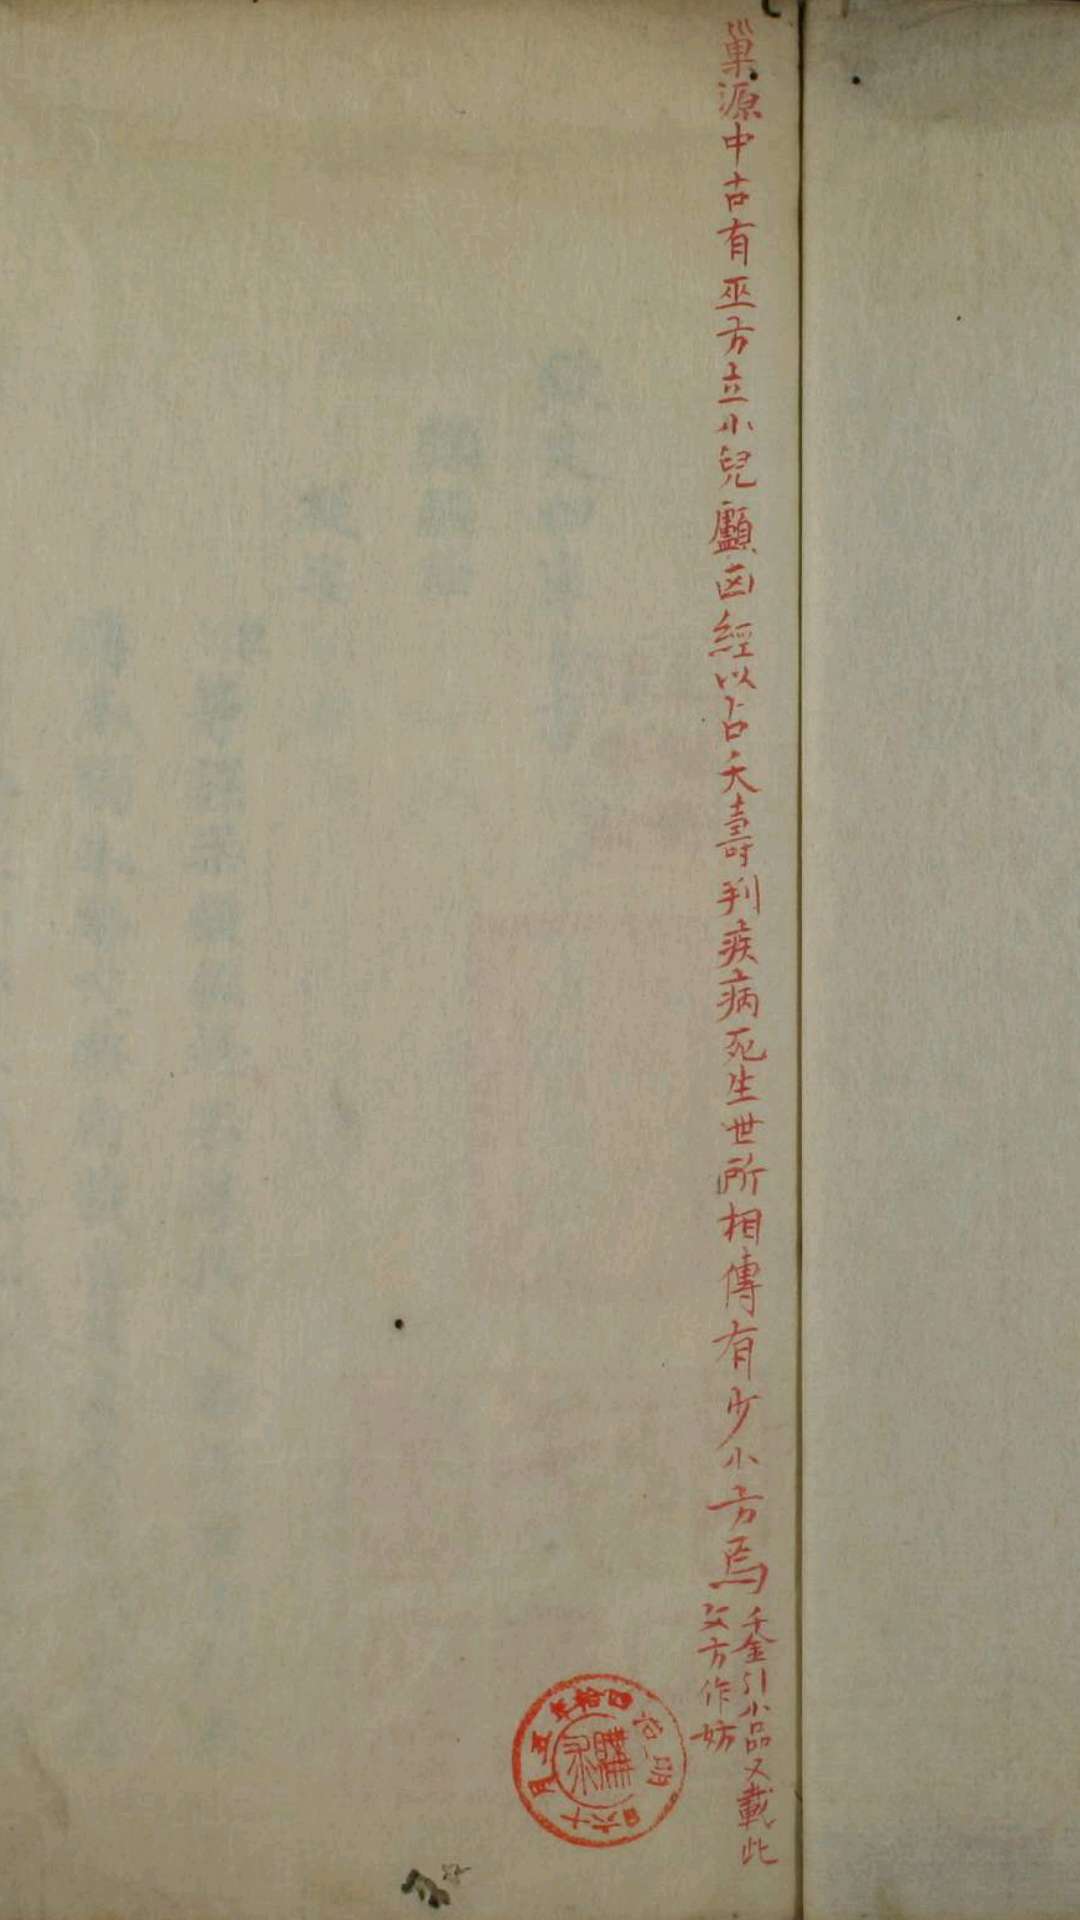 巢源中古有巫方立小兒顱囟經以占夭壽判疾病死生世所相傳有少小方焉
千金引小品又載此
文方作妨
明治四拾年五月十六日
購求